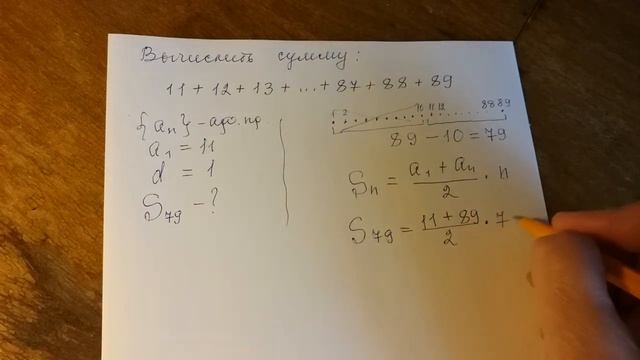 Вычислить сумму:
11 + 12 + 13 + ... + 87 + 88 + 89
{aₙ} - ариф. пр.
a₁ = 11
d = 1
S₇₉ - ?
1 2 10 11 12 88 89
89 - 10 = 79
Sₙ = (a₁ + aₙ)/2 · n
S₇₉ = (11 + 89)/2 · 7